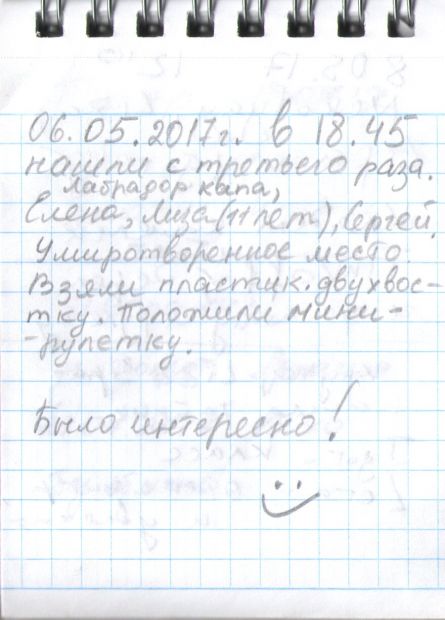 06.05.2017г. в 18.45
нашли с третьего раза.
Лабрадор капа,
Елена, Лиза (11 лет), Сергей.
Умиротворенное место.
Взяли пластик. двухвос-
тку. Положили мини-
-рулетку.
Было интересно!